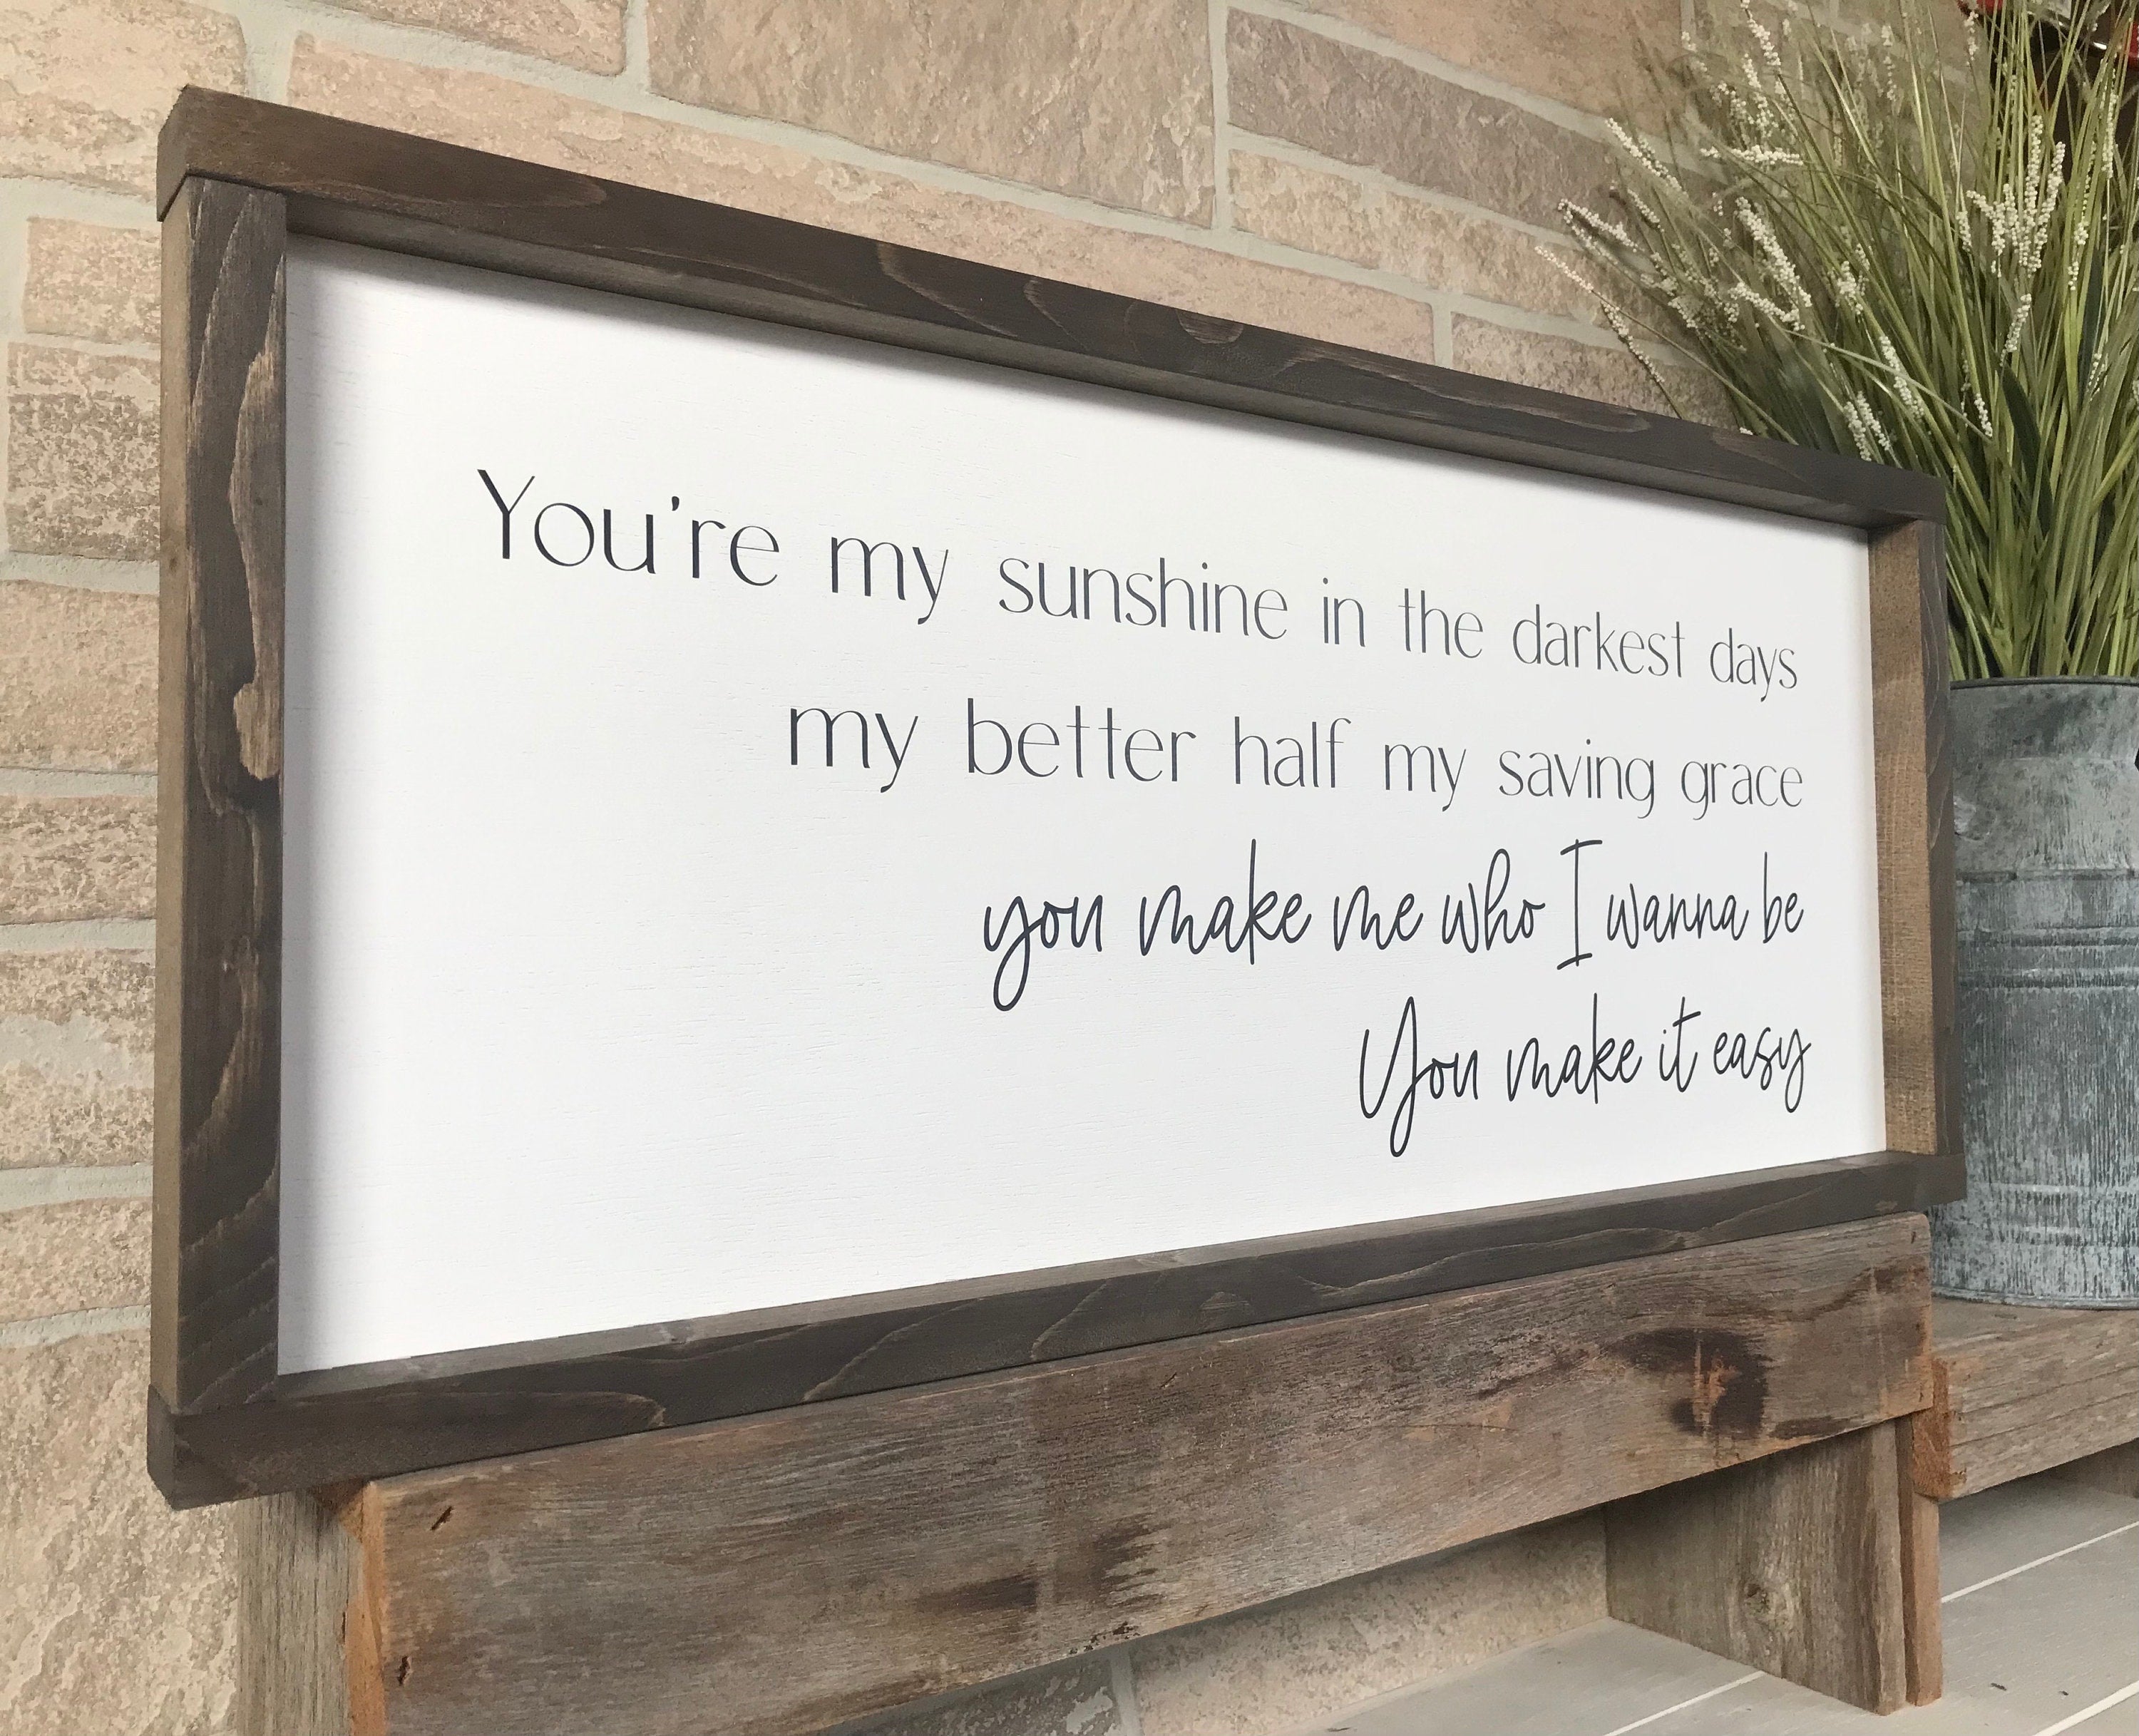 You're my sunshine in the darkest days
my better half my saving grace
you make me who I wanna be
You make it easy